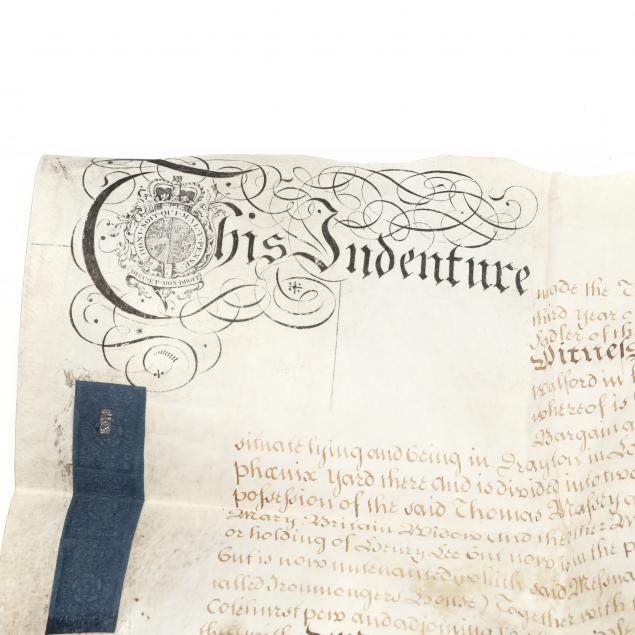 This Indenture
HONI·SOIT·QUI·MAL·Y·PENSE
DIEU·ET·MON·DROIT
made the T
third Year o
of th
Witness
Walford in
whereof is
Bargain a
situate lying and being in Drayton in
Phœnix Yard there and is divided into two
possession of the said Thomas
Mary Britain Widow and the other
or holding of Henry Lee but now in the p
but is now untenanted which said Messua
called Ironmongers House) Together with
pew and adjoining